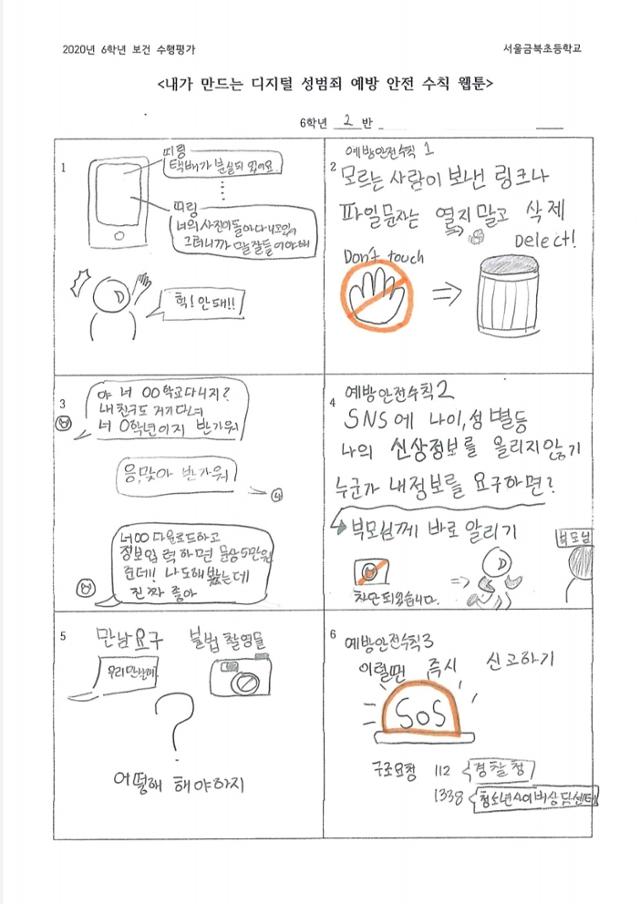 2020년 6학년 보건 수행평가
서울금북초등학교
<내가 만드는 디지털 성범죄 예방 안전 수칙 웹툰>
6학년 2 반
1
띠링
택배가 분실되었어요
띠링
너의 사진이 돌아다니고있어
그러니까 말 잘들어야해
헉! 안돼!!
2
예방안전수칙 1
모르는 사람이 보낸 링크나
파일문자는 열지말고 삭제
Delect!
Don't touch
3
야 너 OO학교다니지?
내친구도 거기다녀
너 O학년이지 반가워
응,맞아 반가워
너OO다운로드하고
정보입력하면 문상5만원
준데! 나도해봤는데
진짜 좋아
4
예방안전수칙2
SNS에 나이,성별등
나의 신상정보를 올리지않기
누군가 내정보를 요구하면?
부모님께 바로 알리기
부모님
차단되었습니다.
5
만남요구 불법촬영등
우리만날래
?
어떻해 해야하지
6
예방안전수칙3
이럴땐 즉시 신고하기
SOS
구조요청 112 경찰청
1338 청소년사이버상담센터